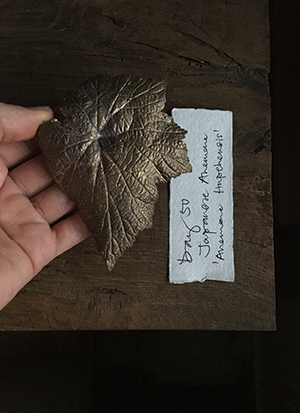 Day 50
Japanese Anemone
'Anemone Hupehensis'